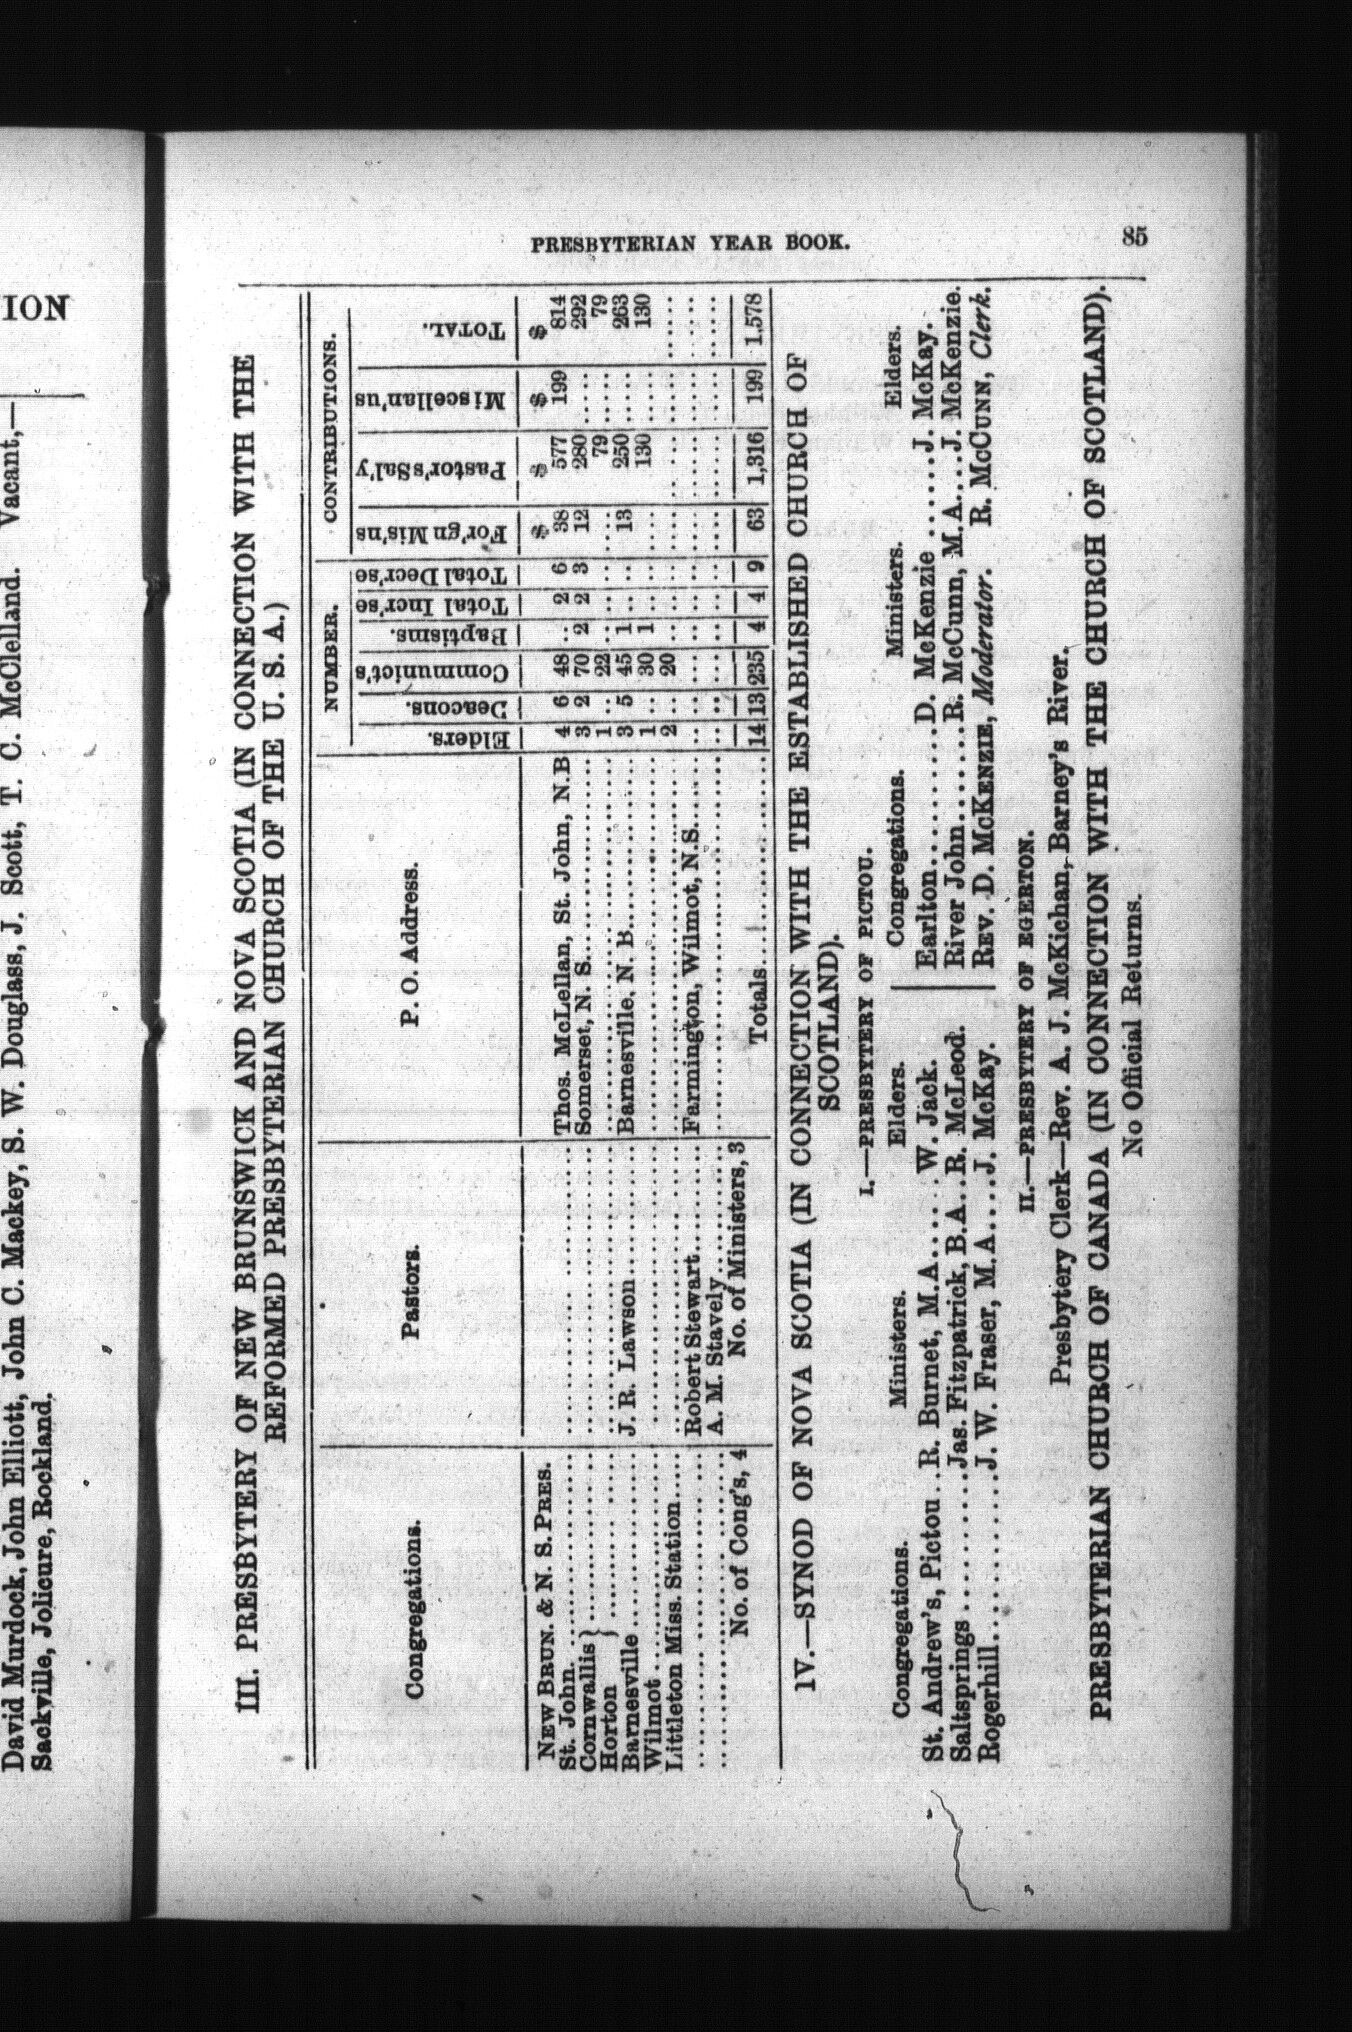 ION
Vacant,—
David Murdock, John Elliott, John C. Mackey, S. W. Douglass, J. Scott, T. C. McClelland.
Sackville, Jolicure, Rockland.
PRESBYTERIAN YEAR BOOK. 85
III. PRESBYTERY OF NEW BRUNSWICK AND NOVA SCOTIA (IN CONNECTION WITH THE
REFORMED PRESBYTERIAN CHURCH OF THE U. S. A.)
NUMBER. CONTRIBUTIONS.
Congregations. Pastors. P. O. Address. Elders. Deacons. Communict's Baptisms. Total Incr'se Total Decr'se For'gn Mis'ns Pastor's Sal'y Miscellan'us TOTAL.
NEW BRUN. & N. S. PRES. $ $ $ $
St. John.......... Thos. McLellan, St. John, N. B 4 6 48 .. 2 6 38 577 199 814
Cornwallis } .......... Somerset, N. S.......... 3 2 70 2 2 3 12 280 .... 292
Horton } .......... 1 .. 22 .. .. .. .. 79 .... 79
Barnesville.......... J. R. Lawson.......... Barnesville, N. B.......... 3 5 45 1 .. .. 13 250 .... 263
Wilmot.......... 1 .. 30 1 .. .. .. 130 .... 130
Littleton Miss. Station.......... 2 .. 20 .. .. .. .. .... .... ....
.......... Robert Stewart.......... Farmington, Wilmot, N.S..........
.......... A. M. Stavely..........
No. of Cong's, 4 No. of Ministers, 3 Totals.......... 14 13 235 4 4 9 63 1,316 199 1,578
IV.—SYNOD OF NOVA SCOTIA (IN CONNECTION WITH THE ESTABLISHED CHURCH OF
SCOTLAND).
I.—PRESBYTERY OF PICTOU.
Congregations. Ministers. Elders. Congregations. Ministers. Elders.
St. Andrew's, Pictou..R. Burnet, M.A......W. Jack. Earlton..........D. McKenzie ......J. McKay.
Saltsprings..........Jas. Fitzpatrick, B.A..R. McLeod. River John.......R. McCunn, M.A....J. McKenzie.
Rogerhill..........J. W. Fraser, M.A....J. McKay. REV. D. MCKENZIE, Moderator. R. MCCUNN, Clerk.
II.—PRESBYTERY OF EGERTON.
Presbytery Clerk—Rev. A. J. McKichan, Barney's River.
PRESBYTERIAN CHURCH OF CANADA (IN CONNECTION WITH THE CHURCH OF SCOTLAND).
No Official Returns.